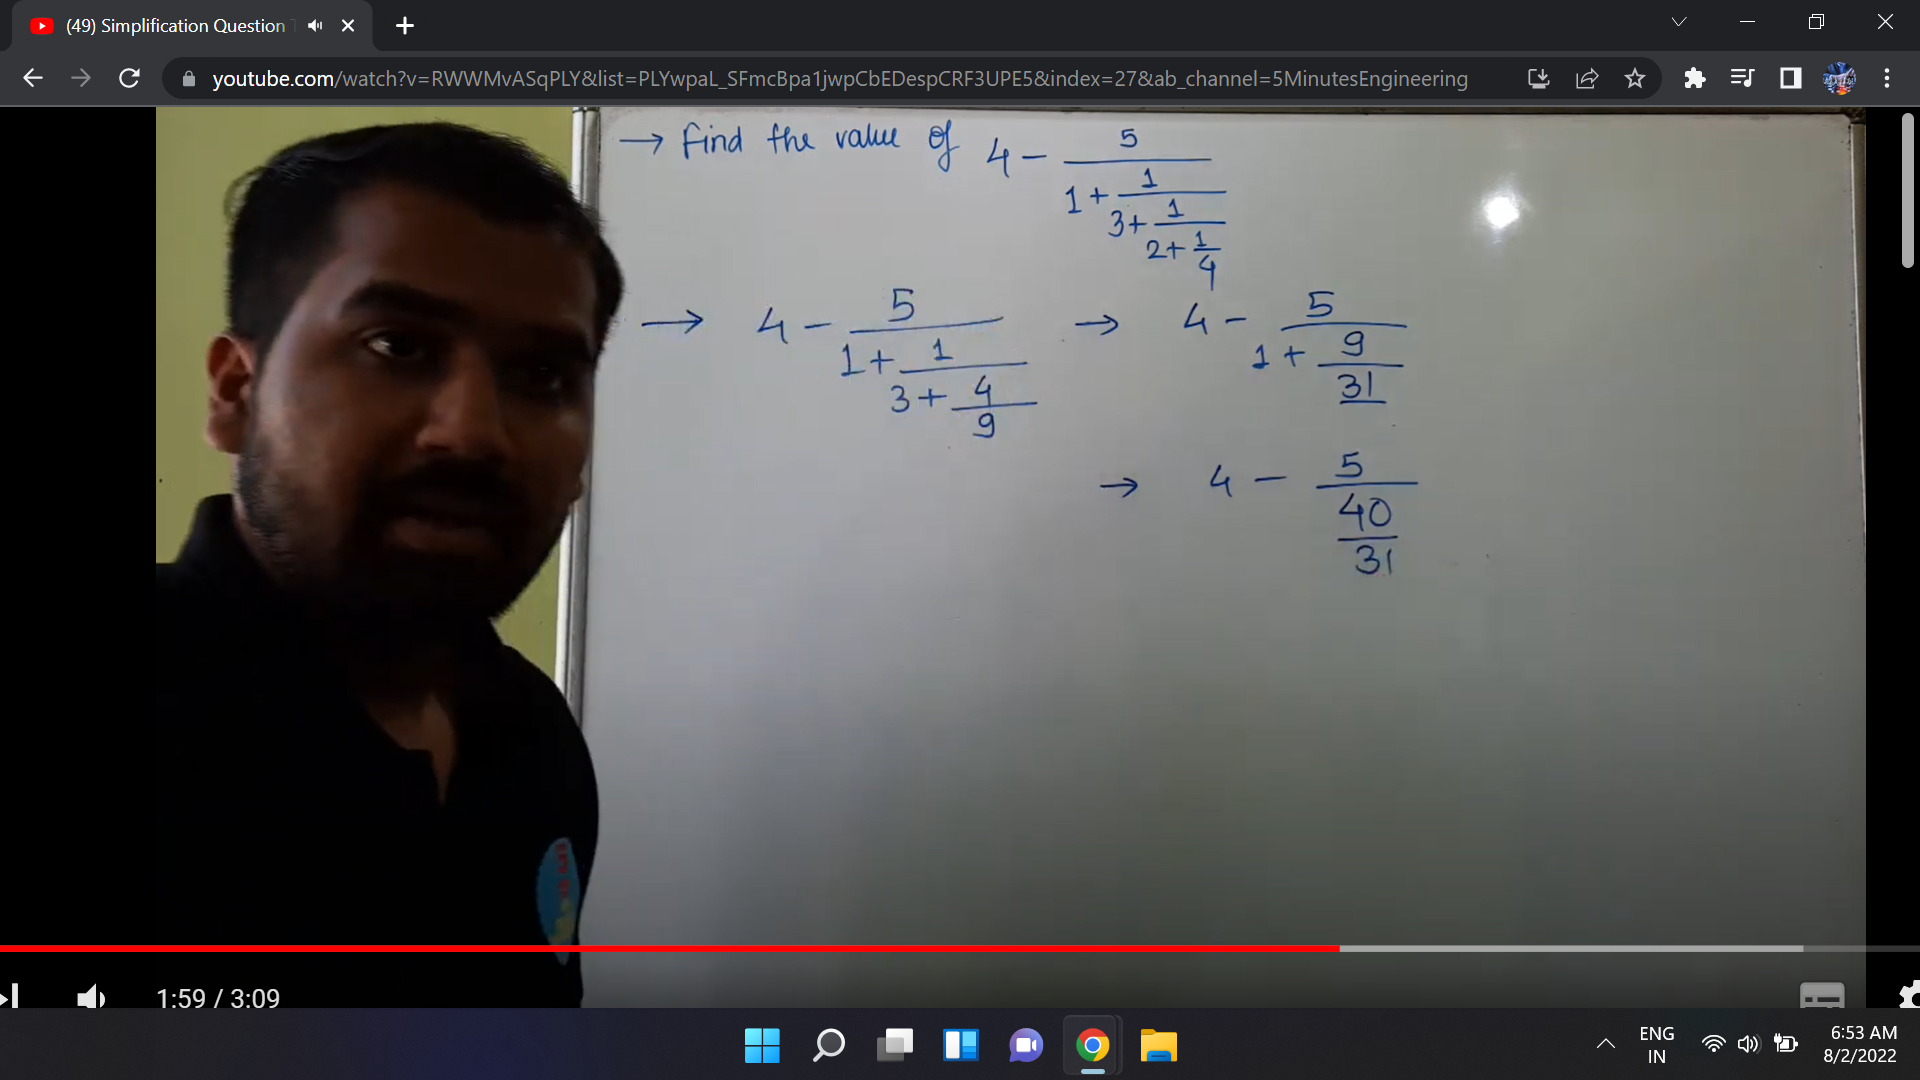 (49) Simplification Question
youtube.com/watch?v=RWWMvASqPLY&list=PLYwpaL_SFmcBpa1jwpCbEDespCRF3UPE5&index=27&ab_channel=5MinutesEngineering
→ Find the value of 4 - 5
1 + 1
3 + 1
2 + 1
4
→ 4 - 5
1 + 1
3 + 4
9
→ 4 - 5
1 + 9
31
→ 4 - 5
40
31
1:59 / 3:09
ENG
IN
6:53 AM
8/2/2022